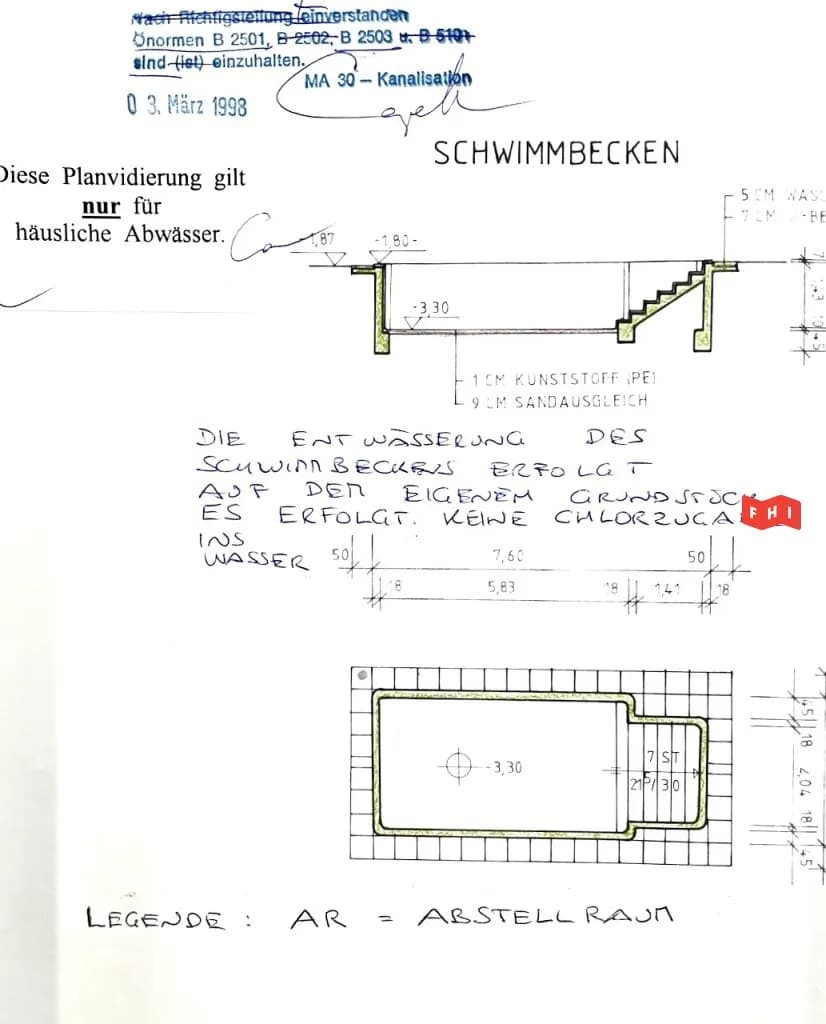 Nach Richtigstellung einverstanden
Önormen B 2501, B 2502, B 2503 u. B 5101
sind (ist) einzuhalten.
MA 30 – Kanalisation
0 3. März 1998
SCHWIMMBECKEN
Diese Planvidierung gilt
nur für
häusliche Abwässer.
5 CM
7 CM
1,87
-1,80-
-3,30
1 CM KUNSTSTOFF (PE)
9 CM SANDAUSGLEICH
DIE ENTWÄSSERUNG DES
SCHWIMMBECKENS ERFOLGT
AUF DEM EIGENEM GRUNDSTÜCK
ES ERFOLGT. KEINE CHLORZUGA
FHI
INS
WASSER
50 7,60 50
18 5,83 18 1,41 18
-3,30
7 ST
21⁵/30
45 18 2,04 18 45
LEGENDE : AR = ABSTELLRAUM